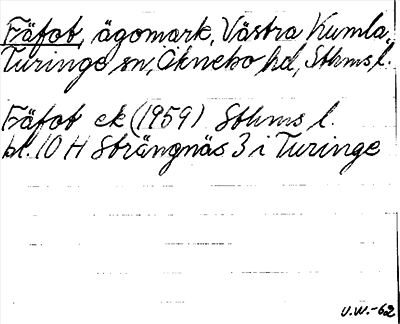 Fäfot, ägomark, Västra Kumla,
Turinge sn, Öknebo hd, Sthms l.
Fäfot ek (1959) Sthms l.
bl. 10 H Strängnäs 3 i Turinge
U.W.-62